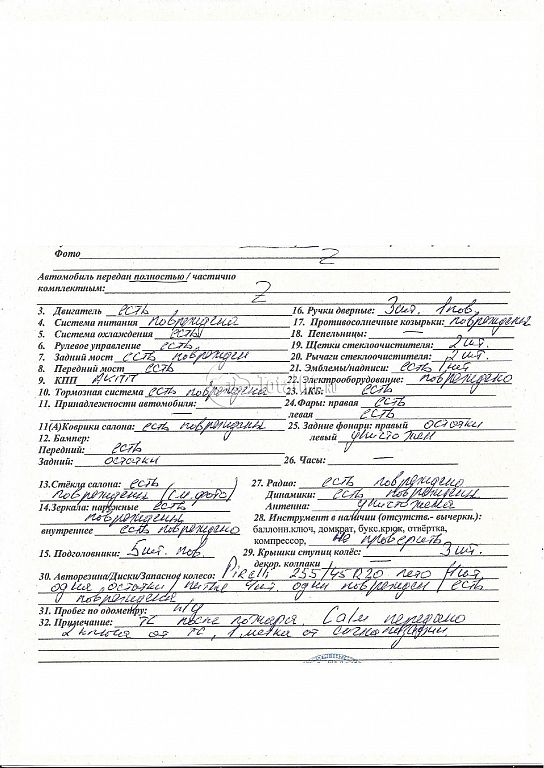 Фото Z
Автомобиль передан полностью / частично
комплектным: Z
3. Двигатель есть
4. Система питания повреждена
5. Система охлаждения есть
6. Рулевое управление есть
7. Задний мост есть поврежден
8. Передний мост есть
9. КПП АКПП
10. Тормозная система есть повреждена
11. Принадлежности автомобиля:
—
11(А)Коврики салона: есть повреждены
12. Бампер:
Передний: есть
Задний: остатки
13.Стёкла салона: есть
повреждены (см. фото)
14.Зеркала: наружные есть
повреждены
внутреннее есть повреждено
15. Подголовники: 5 шт. пов.
16. Ручки дверные: 3 шт. 1 пов.
17. Противосолнечные козырьки: повреждены
18. Пепельницы: —
19. Щетки стеклоочистителя: 2 шт.
20. Рычаги стеклоочистителя: 2 шт.
21. Эмблемы/надписи: есть 1 шт
22. Электрооборудование: повреждено
23. АКБ: есть
24.Фары: правая есть
левая есть
25. Задние фонари: правый остатки
левый уничтожен
26. Часы: —
27. Радио: есть повреждено
Динамики: есть повреждены
Антенна: уничтожена
28. Инструмент в наличии (отсутств.- вычеркн.):
баллонн.ключ, домкрат, букс.крюк, отвёртка,
компрессор, не проверить
29. Крышки ступиц колёс: 3 шт.
декор. колпаки —
30. Авторезина/Диски/Запасное колесо: Pirelli 255/45 R20 лето 4 шт
одна, остатки / литые 4 шт. один поврежден / есть
повреждения
31. Пробег по одометру: н/у
32. Примечание: ТС после пожара передано
2 ключа от ТС, 1 метка от сигнализации